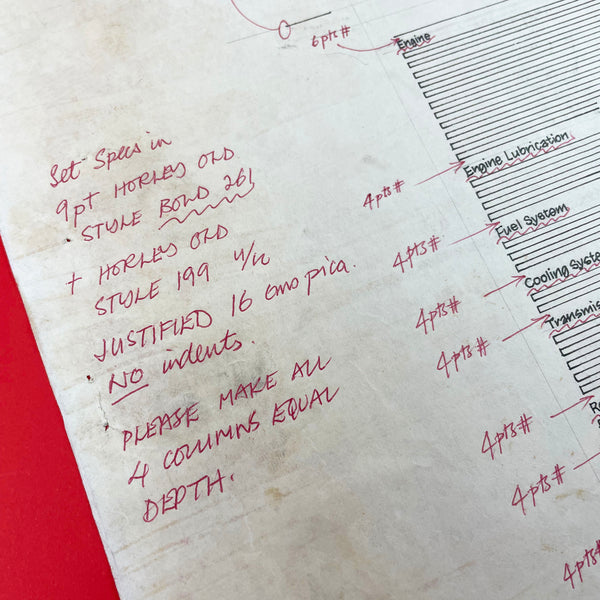 6pts #
Engine
Set Specs in
9pt HORLEY OLD
STYLE BOLD 261
+ HORLEY OLD
STYLE 199 u/lc
JUSTIFIED 16 ems pica.
NO indents.
PLEASE MAKE ALL
4 COLUMNS EQUAL
DEPTH.
4pts #
Engine Lubrication
4pts #
Fuel System
4pts #
Cooling Syste
4pts #
Transmis
4pts #
4pts #
4pts #